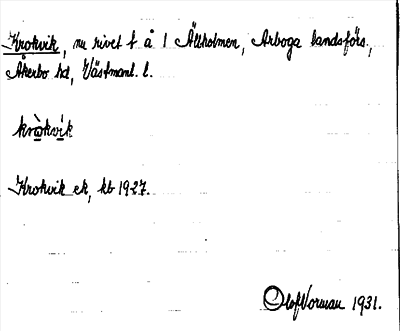 Krokvik, nu rivet t å 1 Ällholmen, Arboga landsförs.,
Åkerbo hd, Västmanl. l.
kròkvík
Krokvik ek, kb 1927.
Olof Norman 1931.